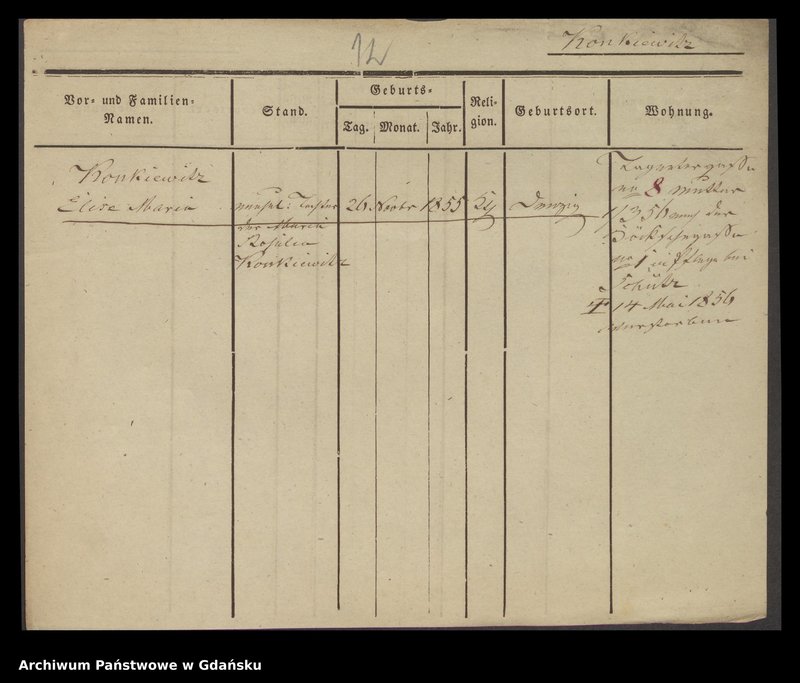 12
Konkiewitz
Vor- und Familien-
Namen.
Stand.
Geburts-
Tag.
Monat.
Jahr.
Reli-
gion.
Geburtsort.
Wohnung.
Konkiewitz
Elise Maria
unehel: Tochter
der Maria
Rosalia
Konkiewitz
26
Novbr
1855
Kth
Danzig
no 8 Mutter
der
no 1 in Pflege bei
Schütz
14 Mai 1856
verstorben
Archiwum Państwowe w Gdańsku